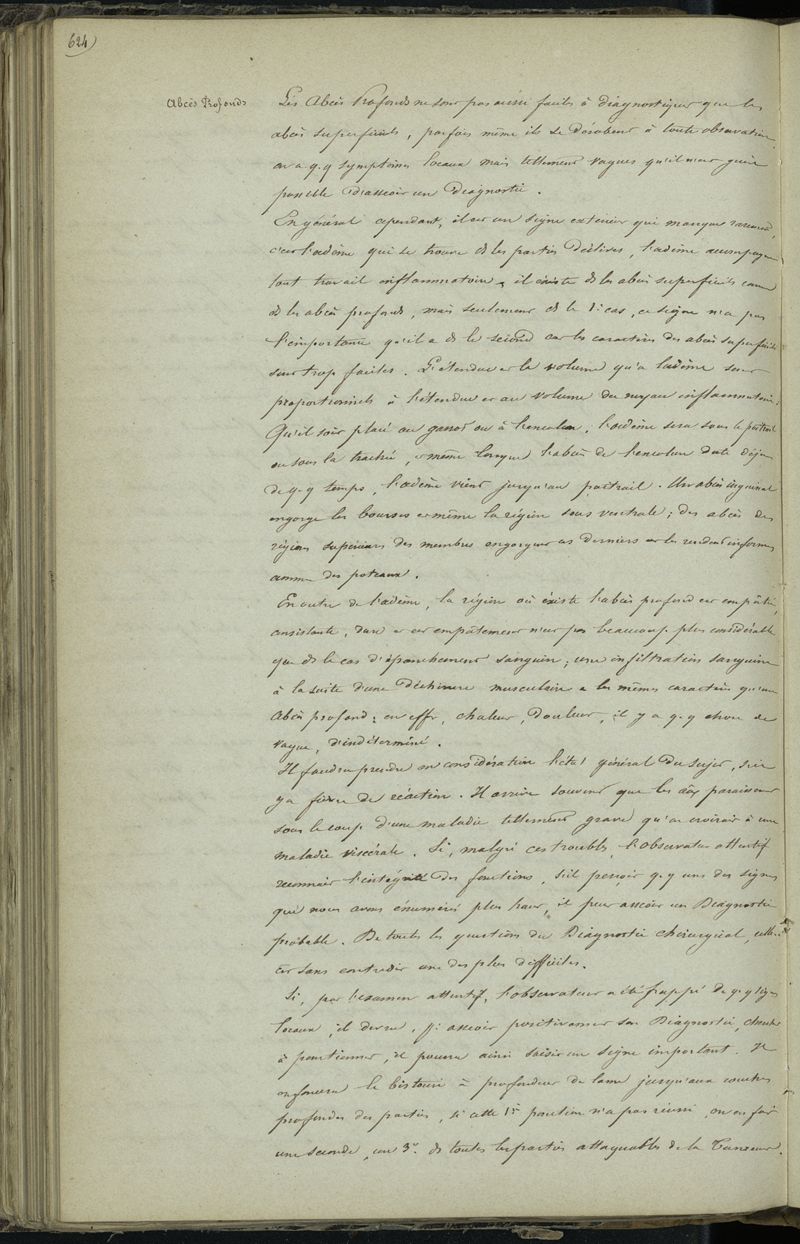 624)
Abcès Profonds
Les Abcès Profonds ne sont pas aussi faciles à diagnostiquer que les
abcès superficiels, parfois même ils se dérobent à toute observation,
on a q.q symptômes locaux mais tellement vagues qu'il n'est guère
possible d'asseoir un Diagnostic.
En général cependant, il est un signe extérieur qui manque rarement,
c'est l'œdème qui se trouve ds les parties Déclives, l'œdème accompagne
tout travail inflammatoire, il existe ds les abcès superficiels comme
ds les abcès profonds, mais seulement ds le 1er cas, ce signe n'a pas
l'importance qu'il a ds le second car les caractères des abcès superficiels
sont trop faciles. L'étendue et le volume qu'a l'œdème sont
proportionnels à l'étendue et au volume du noyau inflammatoire.
Qu'il soit placé au garrot ou à l'encolure, l'œdème sera sous le poitrail
ou sous la trachée, et même lorsque l'abcès de l'encolure date déjà
de q.q temps, l'œdème vient jusqu'au poitrail. Un abcès inguinal
engorge les bourses et même la région sous ventrale; des abcès des
régions supérieures des membres engorgent ces derniers et les rendent informes
comme des poteaux.
En outre de l'œdème, la région où existe l'abcès profond est empâtée,
consistante, dure et cet empâtement n'est pas beaucoup plus considérable
que ds le cas d'épanchement sanguin; une infiltration sanguine
à la suite d'une Déchirure musculaire a les mêmes caractères qu'un
Abcès profond: en effet, chaleur, Douleur, il y a q.q chose de
vague, d'indéterminé.
Il faudra prendre en considération l'état général du sujet, s'il
y a fièvre de réaction. Il arrive souvent que les paraissent
sous le coup d'une maladie tellement grave qu'on croirait à une
maladie viscérale. Si, malgré ces troubles, l'observateur attentif
reconnait l'intégrité des fonctions, s'il perçoit q.q uns des signes
que nous avons énumérés plus haut, il peut asseoir un Diagnostic
probable. De toutes les questions du Diagnostic chirurgical, celle-ci
est sans contredit une des plus difficiles.
Si, par l'examen attentif, l'observateur a été frappé de q.q signes
locaux, il devra, pr asseoir positivement son Diagnostic, chercher
à ponctionner, il pourra ainsi saisir un signe important. Il
enfoncera le bistouri à profondeur de lame jusqu'aux couches
profondes des parties, si cette 1re ponction n'a pas réussi, on en fait
une seconde, une 3e ds toutes les parties attaquables de la Tumeur.